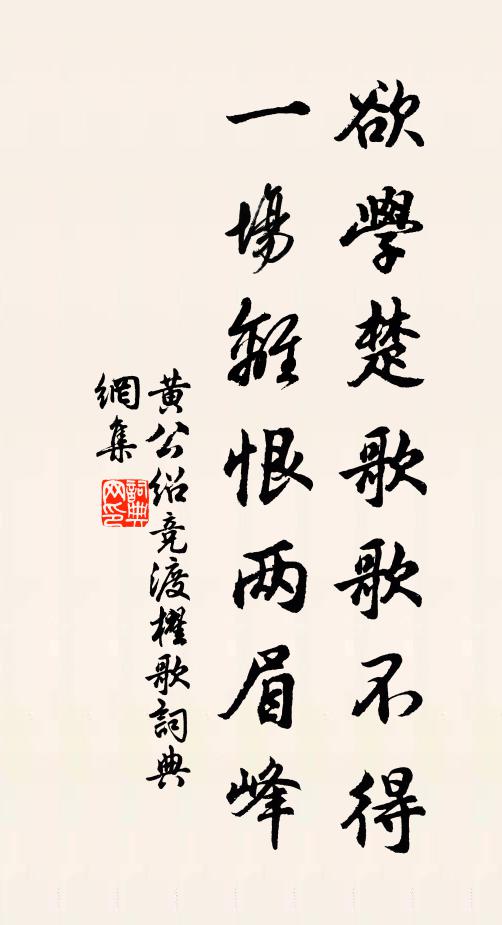 欲學楚歌歌不得
一場離恨两眉峰
黃公紹競渡櫂歌詞典
網集
詞典網印